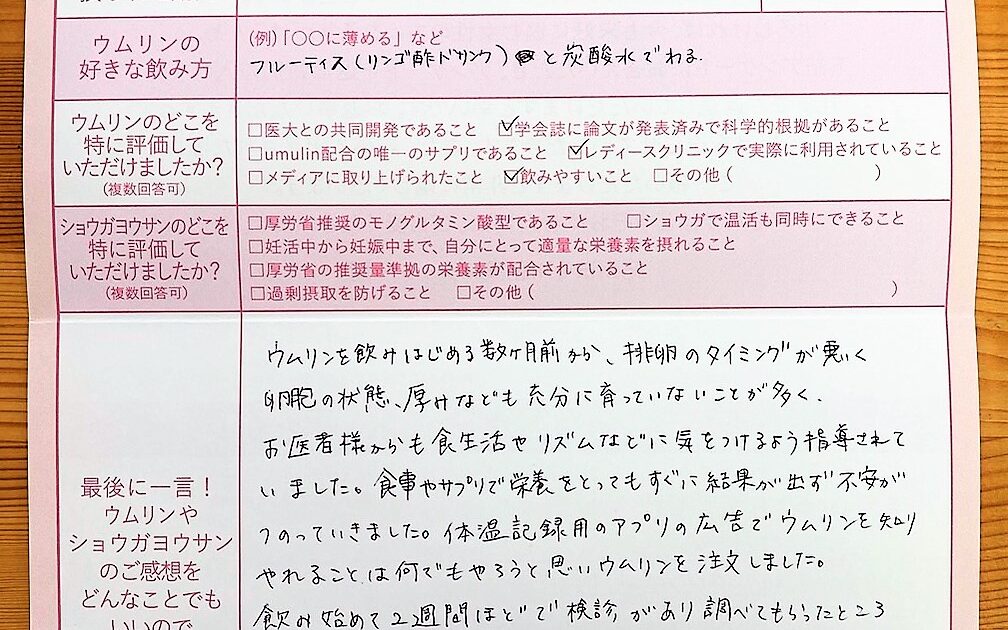 ウムリンの
好きな飲み方
(例)「〇〇に薄める」など
フルーティス(リンゴ酢ドリンク)と炭酸水でわる.
ウムリンのどこを
特に評価して
いただけましたか?
(複数回答可)
□医大との共同開発であること ☑学会誌に論文が発表済みで科学的根拠があること
□umulin配合の唯一のサプリであること ☑レディースクリニックで実際に利用されていること
□メディアに取り上げられたこと ☑飲みやすいこと □その他( )
ショウガヨウサンのどこを
特に評価して
いただけましたか?
(複数回答可)
□厚労省推奨のモノグルタミン酸型であること □ショウガで温活も同時にできること
□妊活中から妊娠中まで、自分にとって適量な栄養素を摂れること
□厚労省の推奨量準拠の栄養素が配合されていること
□過剰摂取を防げること □その他( )
最後に一言!
ウムリンや
ショウガヨウサン
のご感想を
どんなことでも
いいので
ウムリンを飲みはじめる数ヶ月前から、排卵のタイミングが悪く
卵胞の状態、厚みなども充分に育っていないことが多く、
お医者様からも食生活やリズムなどに気をつけるよう指導されて
いました。食事やサプリで栄養をとってもすぐに結果が出ず不安が
つのっていきました。体温記録用のアプリの広告でウムリンを知り
やれることは何でもやろうと思いウムリンを注文しました。
飲み始めて2週間ほどで検診があり調べてもらったところ